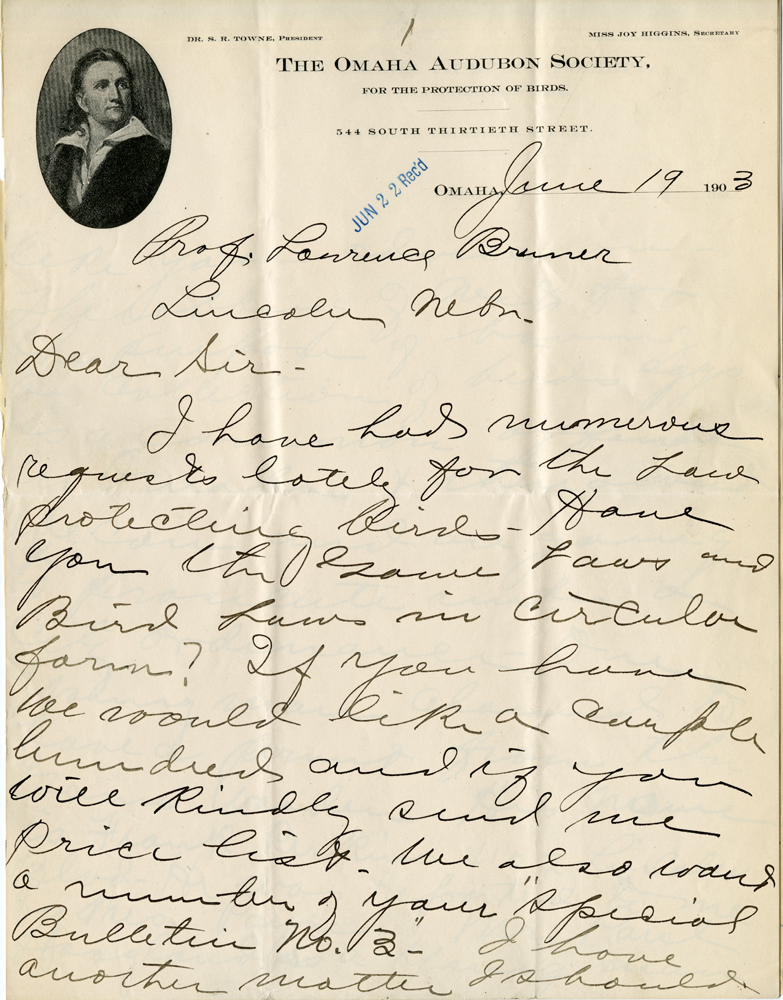 1
DR. S. R. TOWNE, PRESIDENT
MISS JOY HIGGINS, SECRETARY
THE OMAHA AUDUBON SOCIETY,
FOR THE PROTECTION OF BIRDS.
544 SOUTH THIRTIETH STREET.
JUN 22 Rec'd
OMAHA, June 19 1903
Prof. Lawrence Bruner
Lincoln Nebr.
Dear Sir -
I have had numerous
requests lately for the Law
protecting Birds - Have
you the Game Laws and
Bird Laws in circular
form? If you have
we would like a couple
hundred and if you
will kindly send me
price list. We also want
a number of your "Special
Bulletin No. 3" - I have
another matter I should